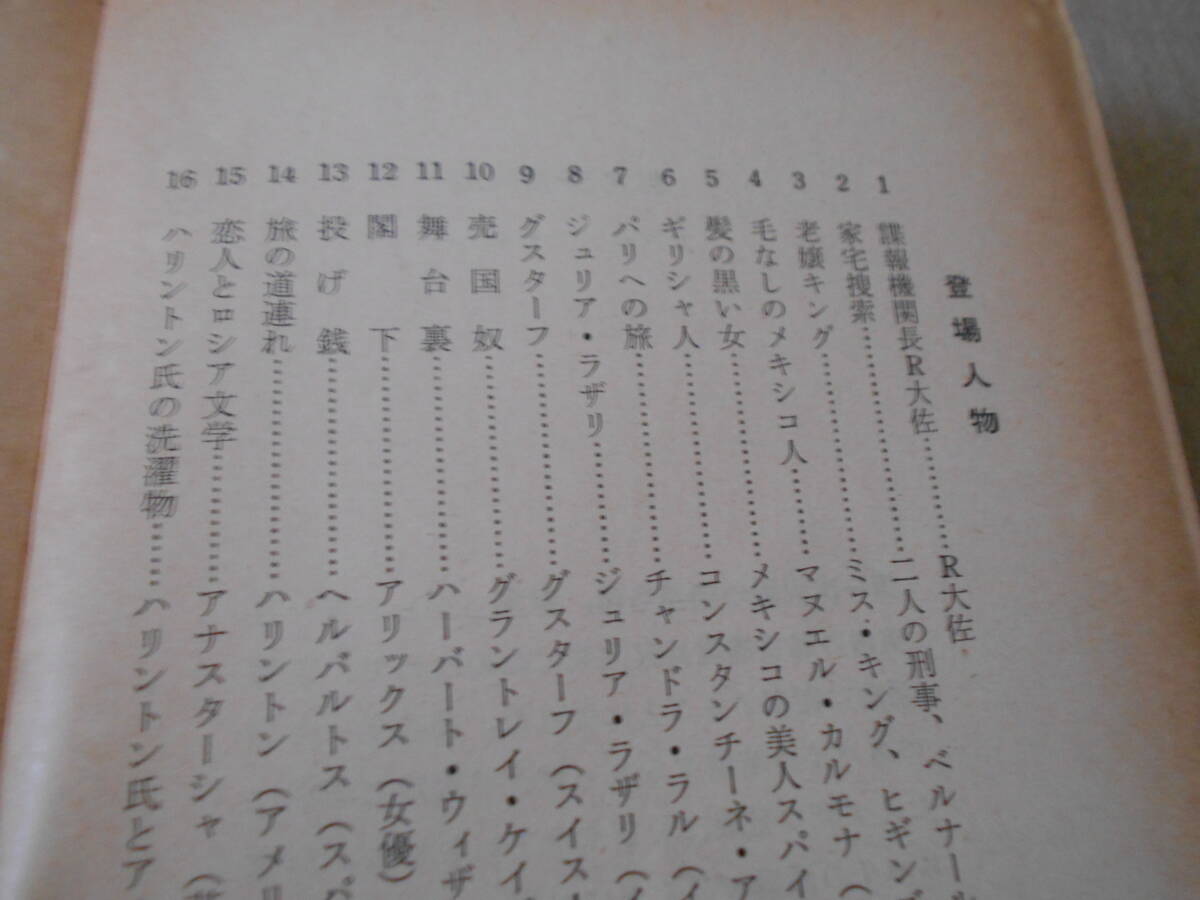 登場人物
1 諜報機関長R大佐…………R大佐
2 家宅捜索…………二人の刑事、ベルナール
3 老嬢キング…………ミス・キング、ヒギンズ
4 毛なしのメキシコ人…………マヌエル・カルモナ（
5 髪の黒い女…………メキシコの美人スパイ
6 ギリシャ人…………コンスタンチーネ・ア
7 パリへの旅…………チャンドラ・ラル（イ
8 ジュリア・ラザリ…………ジュリア・ラザリ（イ
9 グスターフ…………グスターフ（スイス
10 売国奴…………グラントレイ・ケイ
11 舞台裏…………ハーバート・ウィザ
12 閣下…………アリックス（女優）
13 投げ銭…………ヘルバルトス（スパ
14 旅の道連れ…………ハリントン（アメリ
15 恋人とロシア文学…………アナスターシャ（
16 ハリントン氏の洗濯物……ハリントン氏とア